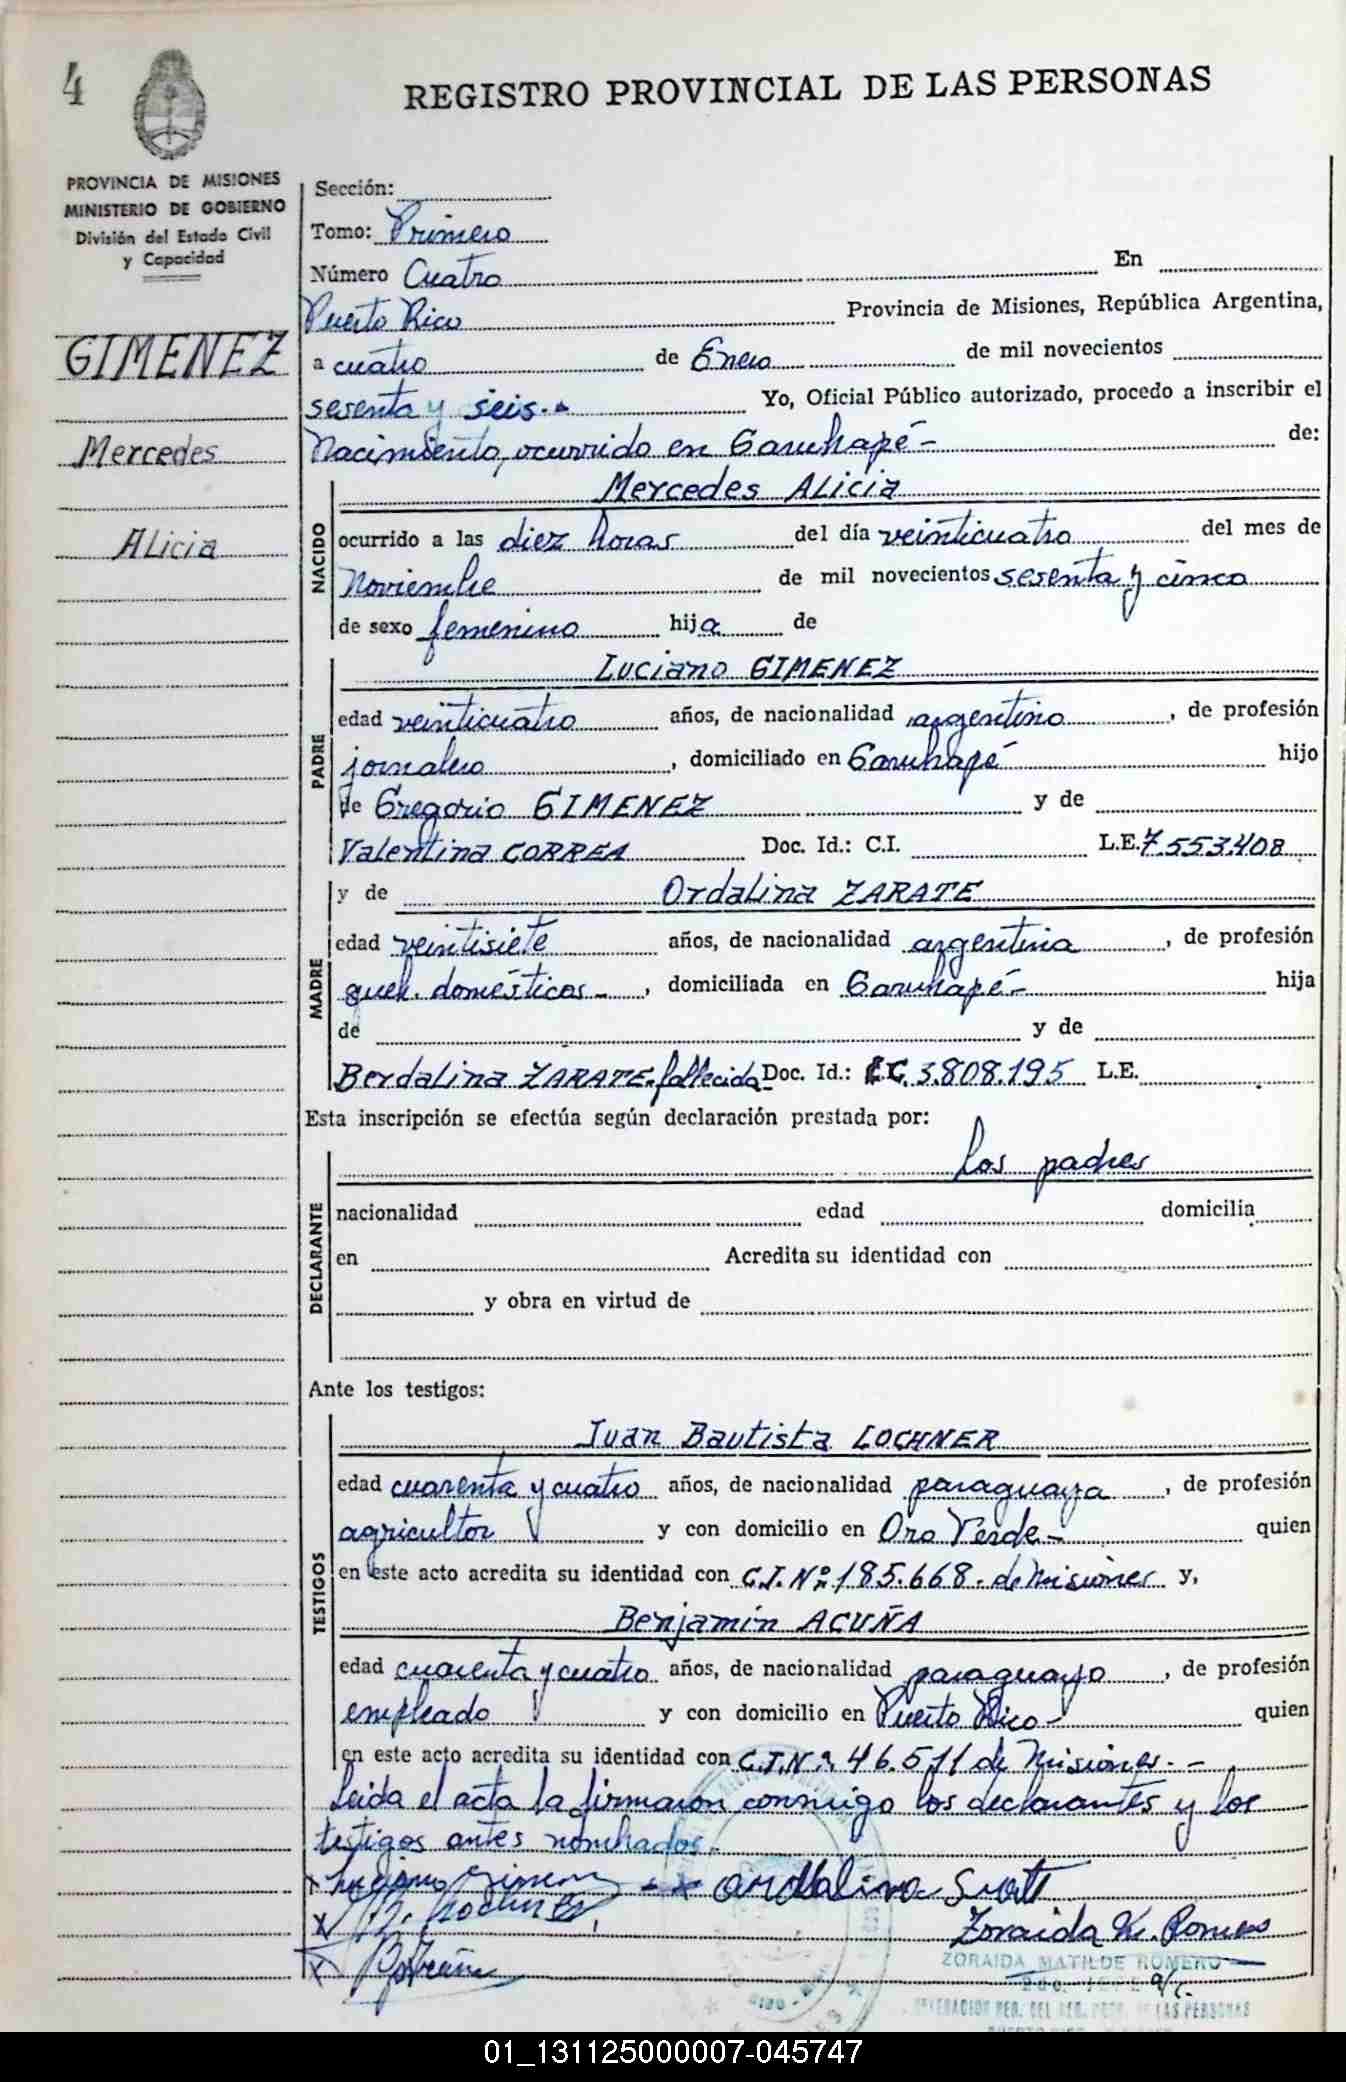 4
REGISTRO PROVINCIAL DE LAS PERSONAS
PROVINCIA DE MISIONES
MINISTERIO DE GOBIERNO
División del Estado Civil
y Capacidad
GIMENEZ
Mercedes
Alicia
Sección:
Tomo: Primero
Número Cuatro En
Puerto Rico Provincia de Misiones, República Argentina,
a cuatro de Enero de mil novecientos
sesenta y seis.- Yo, Oficial Público autorizado, procedo a inscribir el
Nacimiento, ocurrido en Garuhapé- de:
NACIDO
Mercedes Alicia
ocurrido a las diez horas del día veinticuatro del mes de
Noviembre de mil novecientos sesenta y cinco
de sexo femenino hija de
PADRE
Luciano GIMENEZ
edad veinticuatro años, de nacionalidad argentino, de profesión
jornalero, domiciliado en Garuhapé hijo
de Gregorio GIMENEZ y de
Valentina CORREA Doc. Id.: C.I. L.E. 7.553.408
MADRE
y de Ordalina ZARATE
edad veintisiete años, de nacionalidad argentina, de profesión
queh. domésticos-, domiciliada en Garuhapé- hija
de y de
Berdalina ZARATE-fallecida Doc. Id.: L.C. 3.808.195 L.E.
Esta inscripción se efectúa según declaración prestada por:
DECLARANTE
los padres
nacionalidad edad domicilia
en Acredita su identidad con
y obra en virtud de
Ante los testigos:
TESTIGOS
Juan Bautista LOCHNER
edad cuarenta y cuatro años, de nacionalidad paraguaya, de profesión
agricultor y con domicilio en Oro Verde- quien
en este acto acredita su identidad con C.I.Nº 185.668.-de Misiones y,
Benjamín ACUÑA
edad cuarenta y cuatro años, de nacionalidad paraguayo, de profesión
empleado y con domicilio en Puerto Rico- quien
en este acto acredita su identidad con C.I.Nº. 46.511 de Misiones.-
Leida el acta la firmaron conmigo los declarantes y los
testigos antes nombrados.
Zoraida M. Romero
ZORAIDA MATILDE ROMERO
DE LAS PERSONAS
01_131125000007-045747